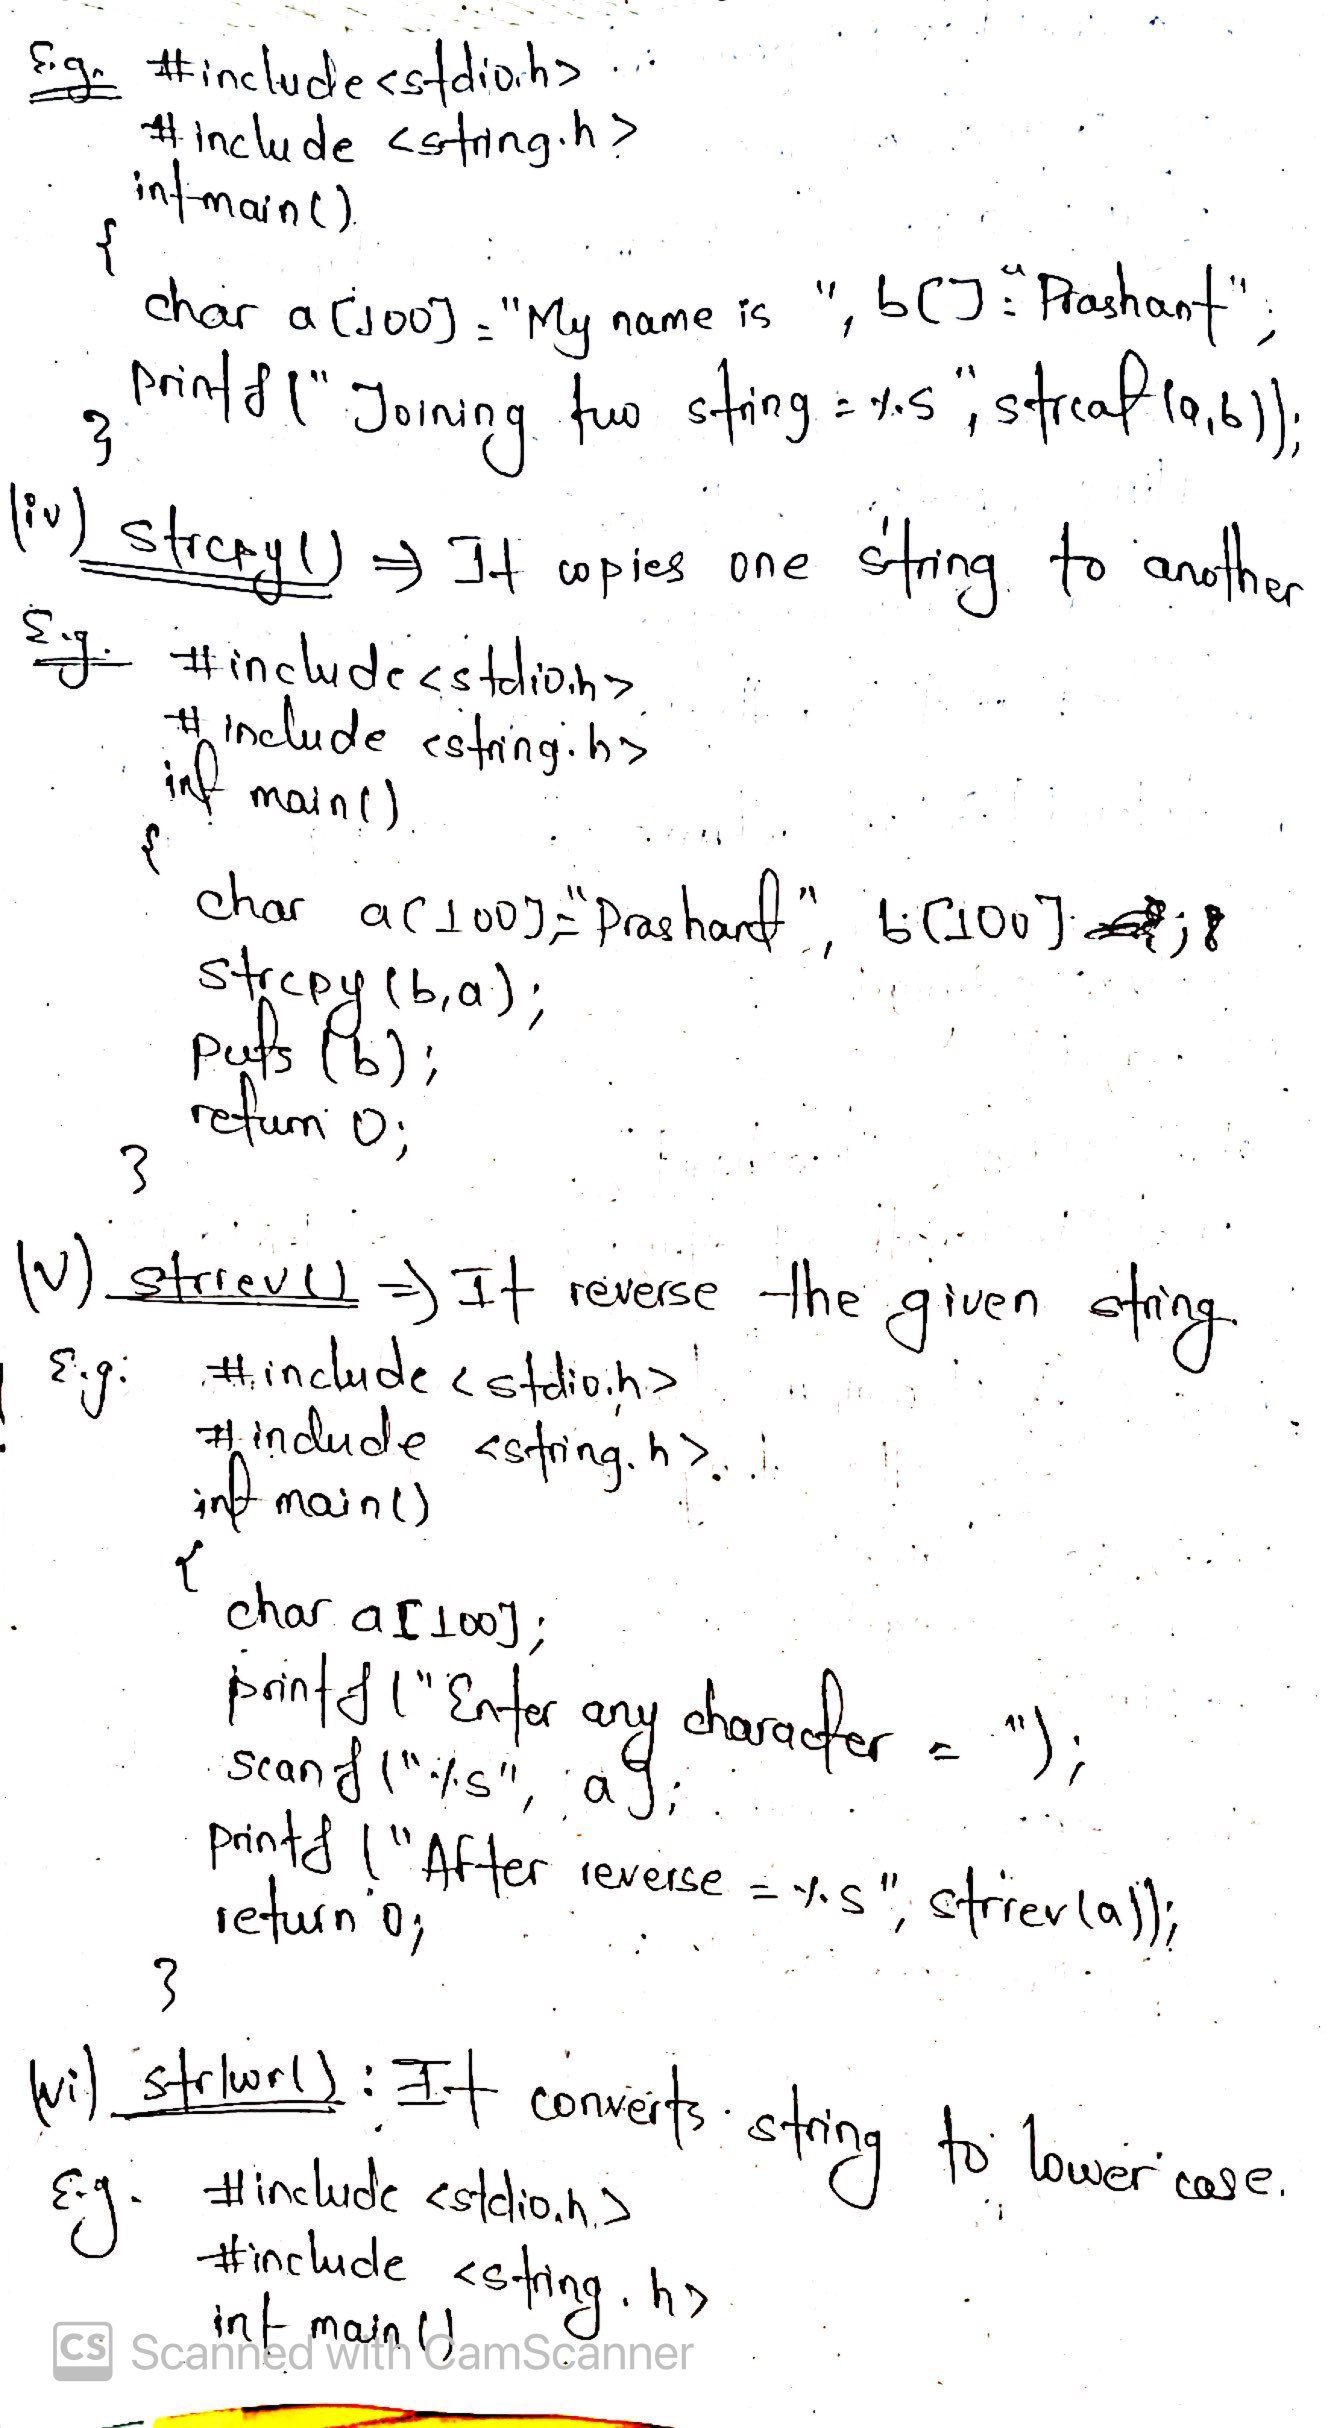 E.g. #include<stdio.h>
#include <string.h>
int main()
{
char a[100] = "My name is ", b[] = "Prashant";
printf(" Joining two string = %s", strcat(a,b));
}
(iv) strcpy() ⇒ It copies one string to another
E.g. #include<stdio.h>
#include <string.h>
int main()
{
char a[100] = "Prashant", b[100] ;
strcpy(b,a);
puts(b);
return 0;
}
(v) strrev() ⇒ It reverse the given string
E.g: #include <stdio.h>
#include <string.h>
int main()
{
char a[100];
printf("Enter any character = ");
scanf("%s", a);
printf("After reverse = %s", strrev(a));
return 0;
}
(vi) strlwr() : It converts string to lower case.
E.g. #include <stdio.h>
#include <string.h>
int main()
CS Scanned with CamScanner